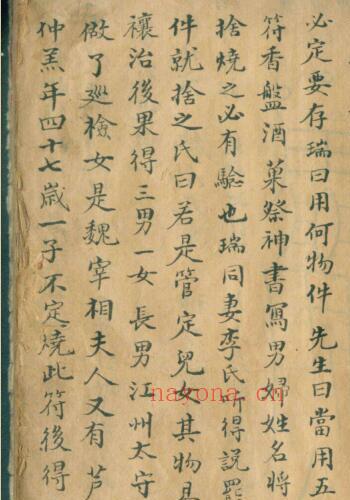 必定要存瑞曰用何物件先生曰當用五
符香盤酒菓祭神書寫男婦姓名將
捨燒之必有驗也瑞同妻李氏所得說罷
件就捨之氏曰若是管定兒女其物易
禳治後果得三男一女長男江州太守
做了廵檢女是魏宰相夫人又有芦
仲羔年四十七歲一子不定燒此符後得
nayona.cn